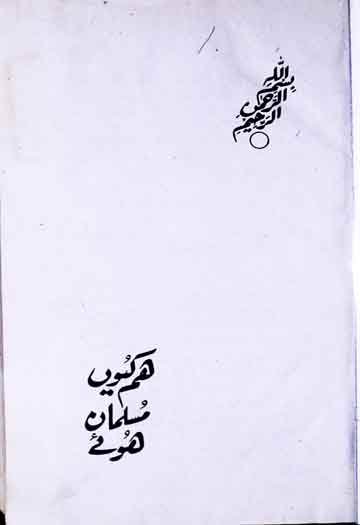 بسم الله
الرحمن
الرحيم
ھَم کیوں
مُسلمان
ھُوئے